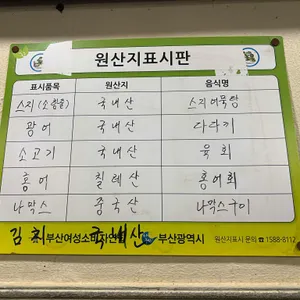 원산지표시판
표시품목 원산지 음식명
스지(소힘줄) 국내산 스지어묵탕
광어 국내산 다다끼
소고기 국내산 육회
홍어 칠레산 홍어회
나막스 중국산 나막스구이
김치 국내산
부산여성소비자연합 부산광역시 원산지표시 문의 ☎ 1588-8112